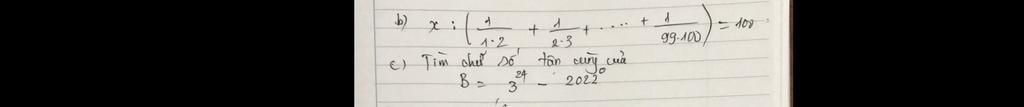 b) x : (1/1·2 + 1/2·3 + ..... + 1/99·100) = 100
c) Tìm chữ số tận cùng của
B = 3^24 - 2022^0